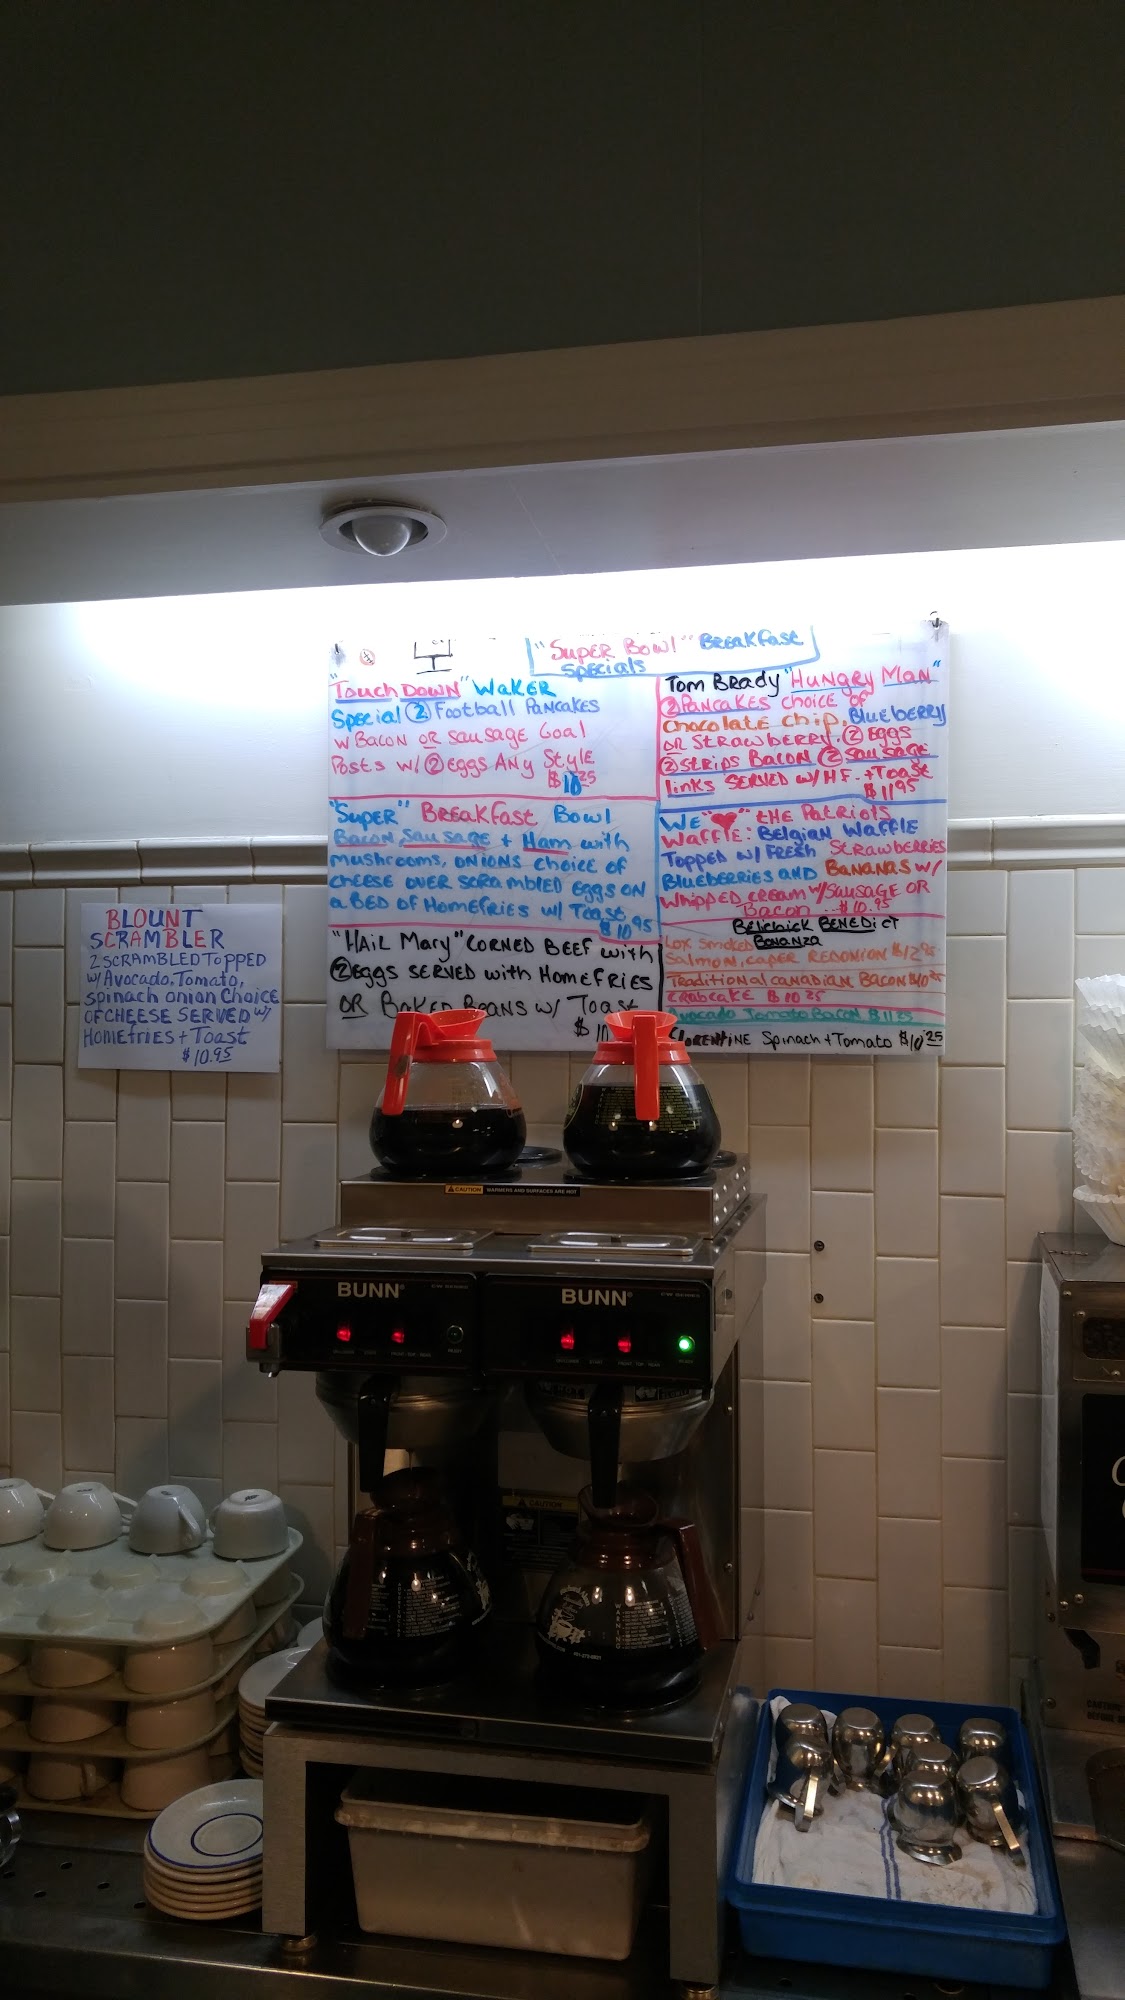 "Super Bowl" Breakfast
Specials
"Touch Down" Waker
Special 2 Football Pancakes
w Bacon or Sausage Goal
Posts w/ 2 eggs Any Style
$10.25
"Super" Breakfast Bowl
Bacon, Sausage + Ham with
mushrooms, onions choice of
cheese over scrambled eggs on
a Bed of Homefries w/ Toast
$10.95
"Hail Mary" Corned Beef with
2 eggs served with Homefries
or Baked Beans w/ Toast
$10
Tom Brady "Hungry Man"
2 Pancakes choice of
Chocolate chip, Blueberry
or Strawberry. 2 eggs
2 strips Bacon 2 sausage
links served w/ HF. + Toast
$11.95
We ❤ the Patriots
Waffle: Belgian Waffle
Topped w/ Fresh Strawberries
Blueberries and Bananas w/
Whipped cream w/ sausage or
Bacon ... $10.95
Belichick Benedict
Bonanza
Lox Smoked
Salmon, caper Redonion $12.95
Traditional canadian Bacon $10.25
Crabcake $10.25
Avocado Tomato Bacon $11.25
Florentine Spinach + Tomato $10.25
Blount
Scrambler
2 scrambled topped
w/ Avocado, Tomato,
spinach onion choice
of cheese served w/
Homefries + Toast
$10.95
CAUTION WARMERS AND SURFACES ARE HOT
BUNN BUNN
CAUTION